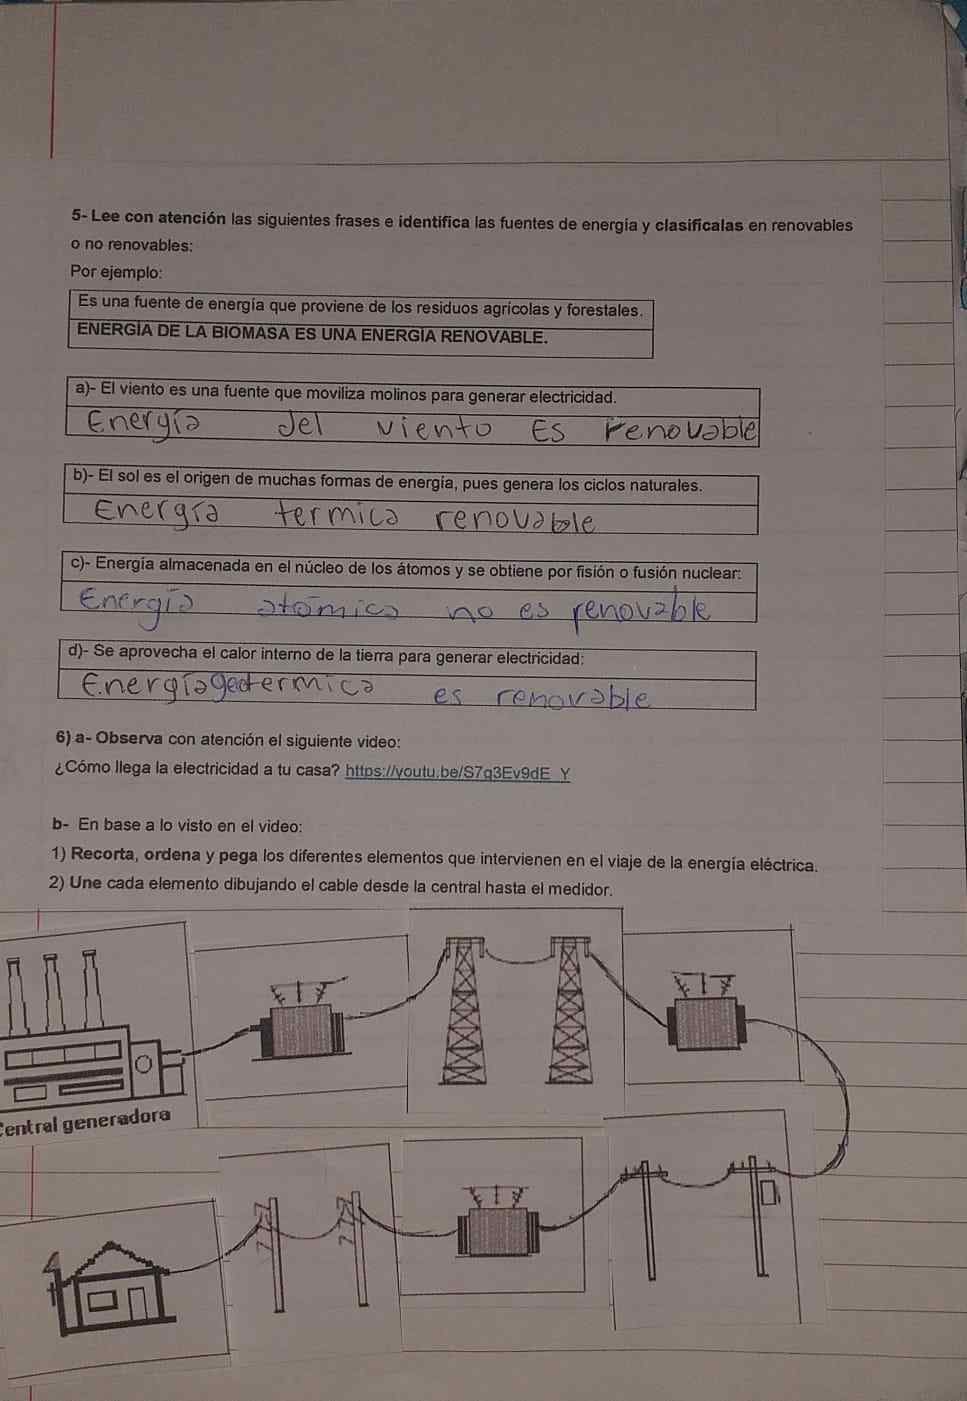 5- Lee con atención las siguientes frases e identifica las fuentes de energía y clasifícalas en renovables
o no renovables:
Por ejemplo:
Es una fuente de energía que proviene de los residuos agrícolas y forestales.
ENERGÍA DE LA BIOMASA ES UNA ENERGÍA RENOVABLE.
a)- El viento es una fuente que moviliza molinos para generar electricidad.
Energía del viento Es renovable
b)- El sol es el origen de muchas formas de energía, pues genera los ciclos naturales.
Energía termica renovable
c)- Energía almacenada en el núcleo de los átomos y se obtiene por fisión o fusión nuclear:
Energía atómica no es renovable
d)- Se aprovecha el calor interno de la tierra para generar electricidad:
Energía geotermica es renovable
6) a- Observa con atención el siguiente video:
¿Cómo llega la electricidad a tu casa? https://youtu.be/S7q3Ev9dE_Y
b- En base a lo visto en el video:
1) Recorta, ordena y pega los diferentes elementos que intervienen en el viaje de la energía eléctrica.
2) Une cada elemento dibujando el cable desde la central hasta el medidor.
Central generadora